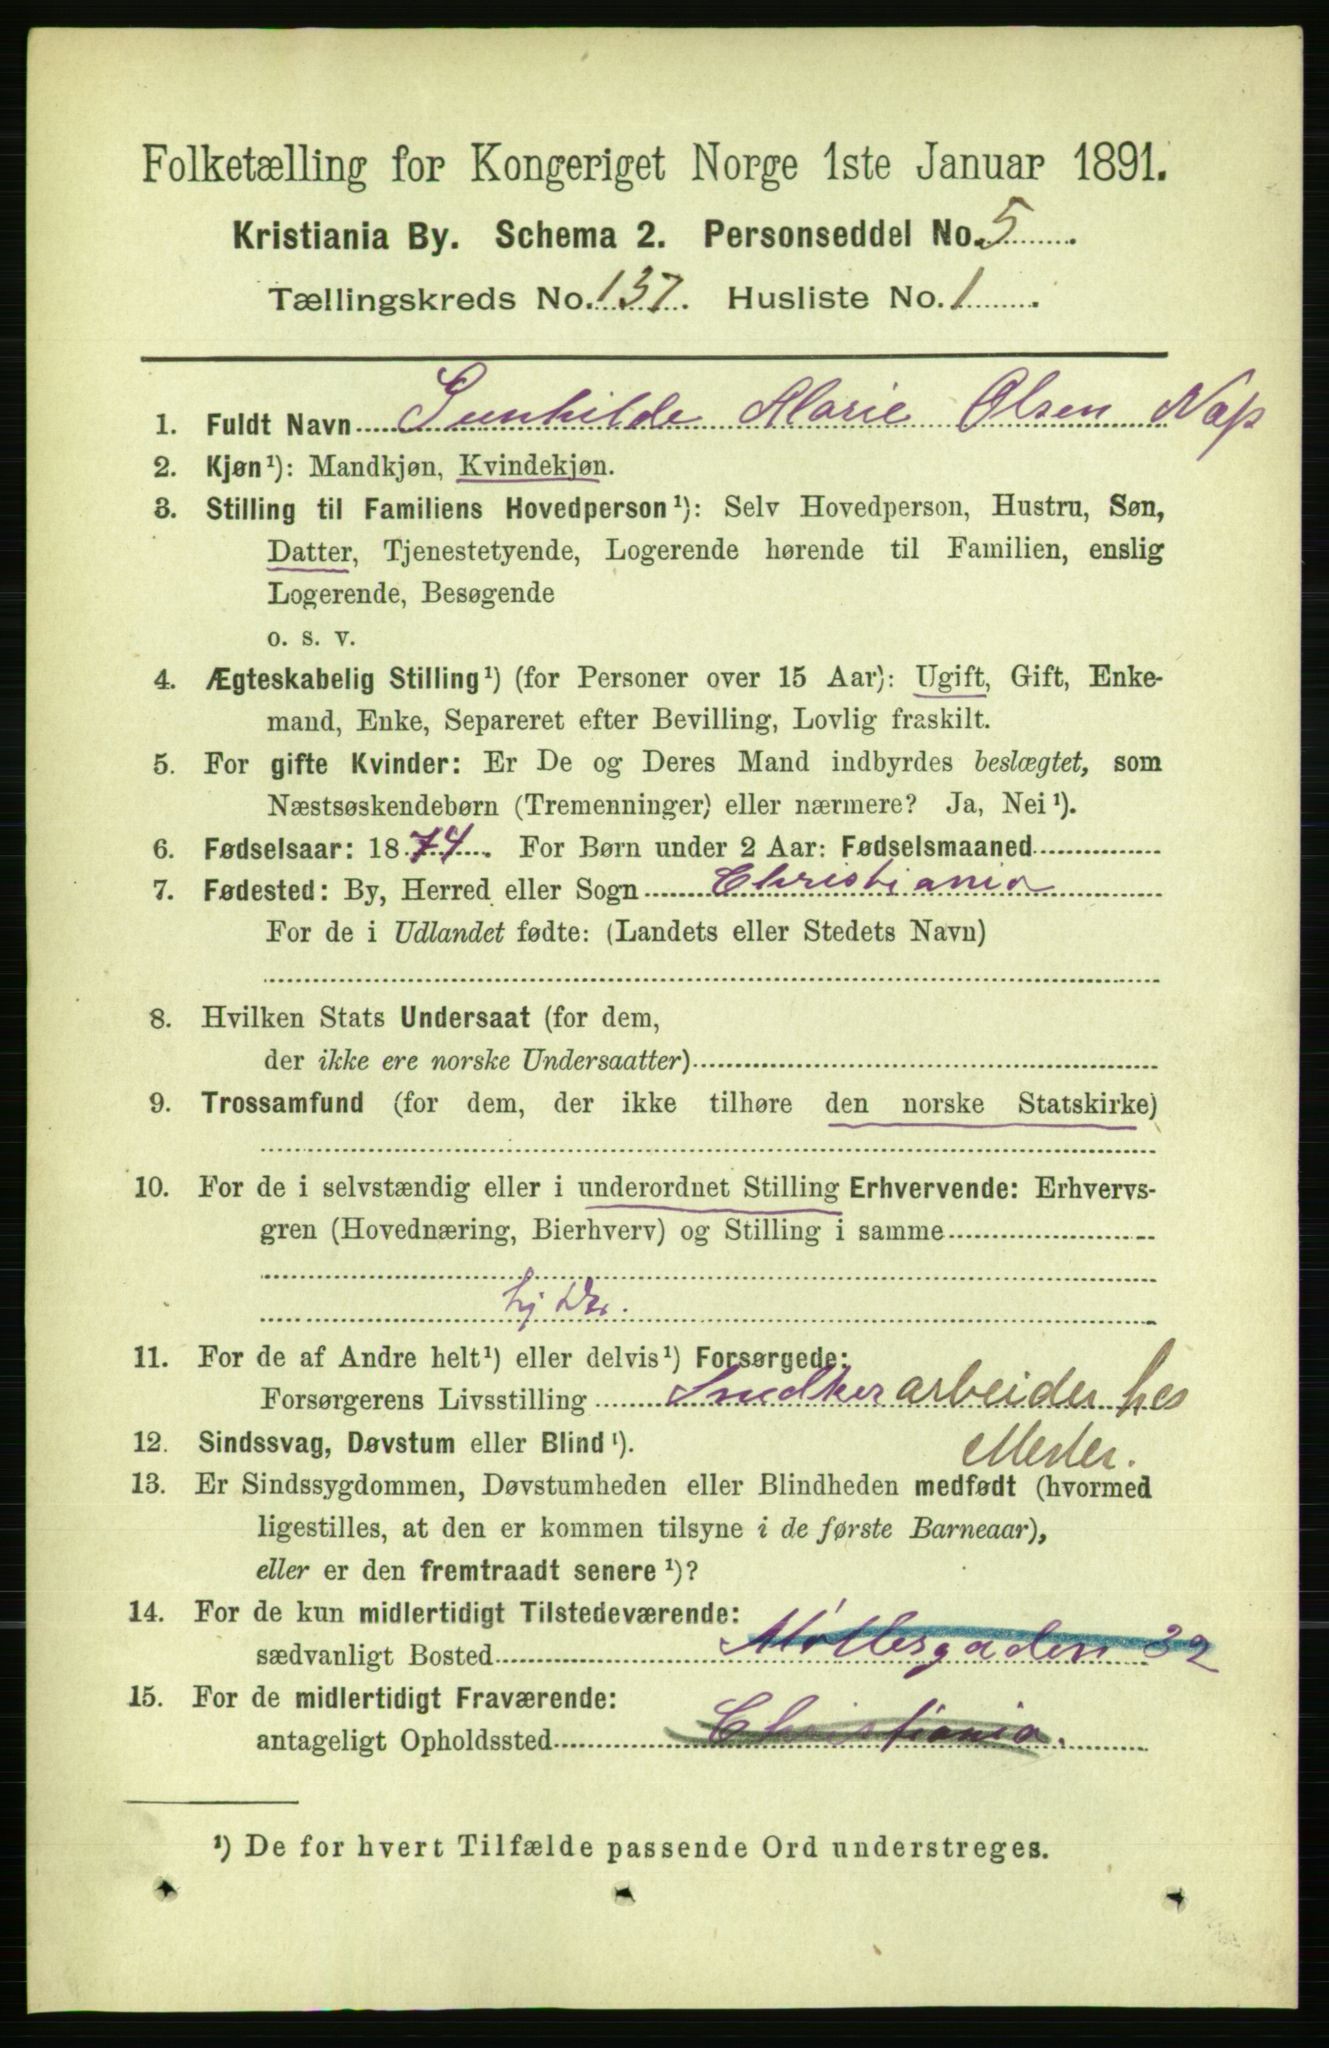 Folketælling for Kongeriget Norge 1ste Januar 1891.
Kristiania By. Schema 2. Personseddel No. 5
Tællingskreds No. 137. Husliste No. 1
1. Fuldt Navn Gunhilde Marie Olsen Næss
2. Kjøn¹): Mandkjøn, Kvindekjøn.
3. Stilling til Familiens Hovedperson¹): Selv Hovedperson, Hustru, Søn,
Datter, Tjenestetyende, Logerende hørende til Familien, enslig
Logerende, Besøgende
o. s. v.
4. Ægteskabelig Stilling¹) (for Personer over 15 Aar): Ugift, Gift, Enke-
mand, Enke, Separeret efter Bevilling, Lovlig fraskilt.
5. For gifte Kvinder: Er De og Deres Mand indbyrdes beslægtet, som
Næstsøskendebørn (Tremenninger) eller nærmere? Ja, Nei¹).
6. Fødselsaar: 1874. For Børn under 2 Aar: Fødselsmaaned
7. Fødested: By, Herred eller Sogn Christiania
For de i Udlandet fødte: (Landets eller Stedets Navn)
8. Hvilken Stats Undersaat (for dem,
der ikke ere norske Undersaatter)
9. Trossamfund (for dem, der ikke tilhøre den norske Statskirke)
10. For de i selvstændig eller i underordnet Stilling Erhvervende: Erhvervs-
gren (Hovednæring, Bierhverv) og Stilling i samme
hj Dr.
11. For de af Andre helt¹) eller delvis¹) Forsørgede:
Forsørgerens Livsstilling Snedkerarbeider hos
Mester.
12. Sindssvag, Døvstum eller Blind¹).
13. Er Sindssygdommen, Døvstumheden eller Blindheden medfødt (hvormed
ligestilles, at den er kommen tilsyne i de første Barneaar),
eller er den fremtraadt senere¹)?
14. For de kun midlertidigt Tilstedeværende:
sædvanligt Bosted Møllergaden 32
15. For de midlertidigt Fraværende:
antageligt Opholdssted Christiania.
¹) De for hvert Tilfælde passende Ord understreges.